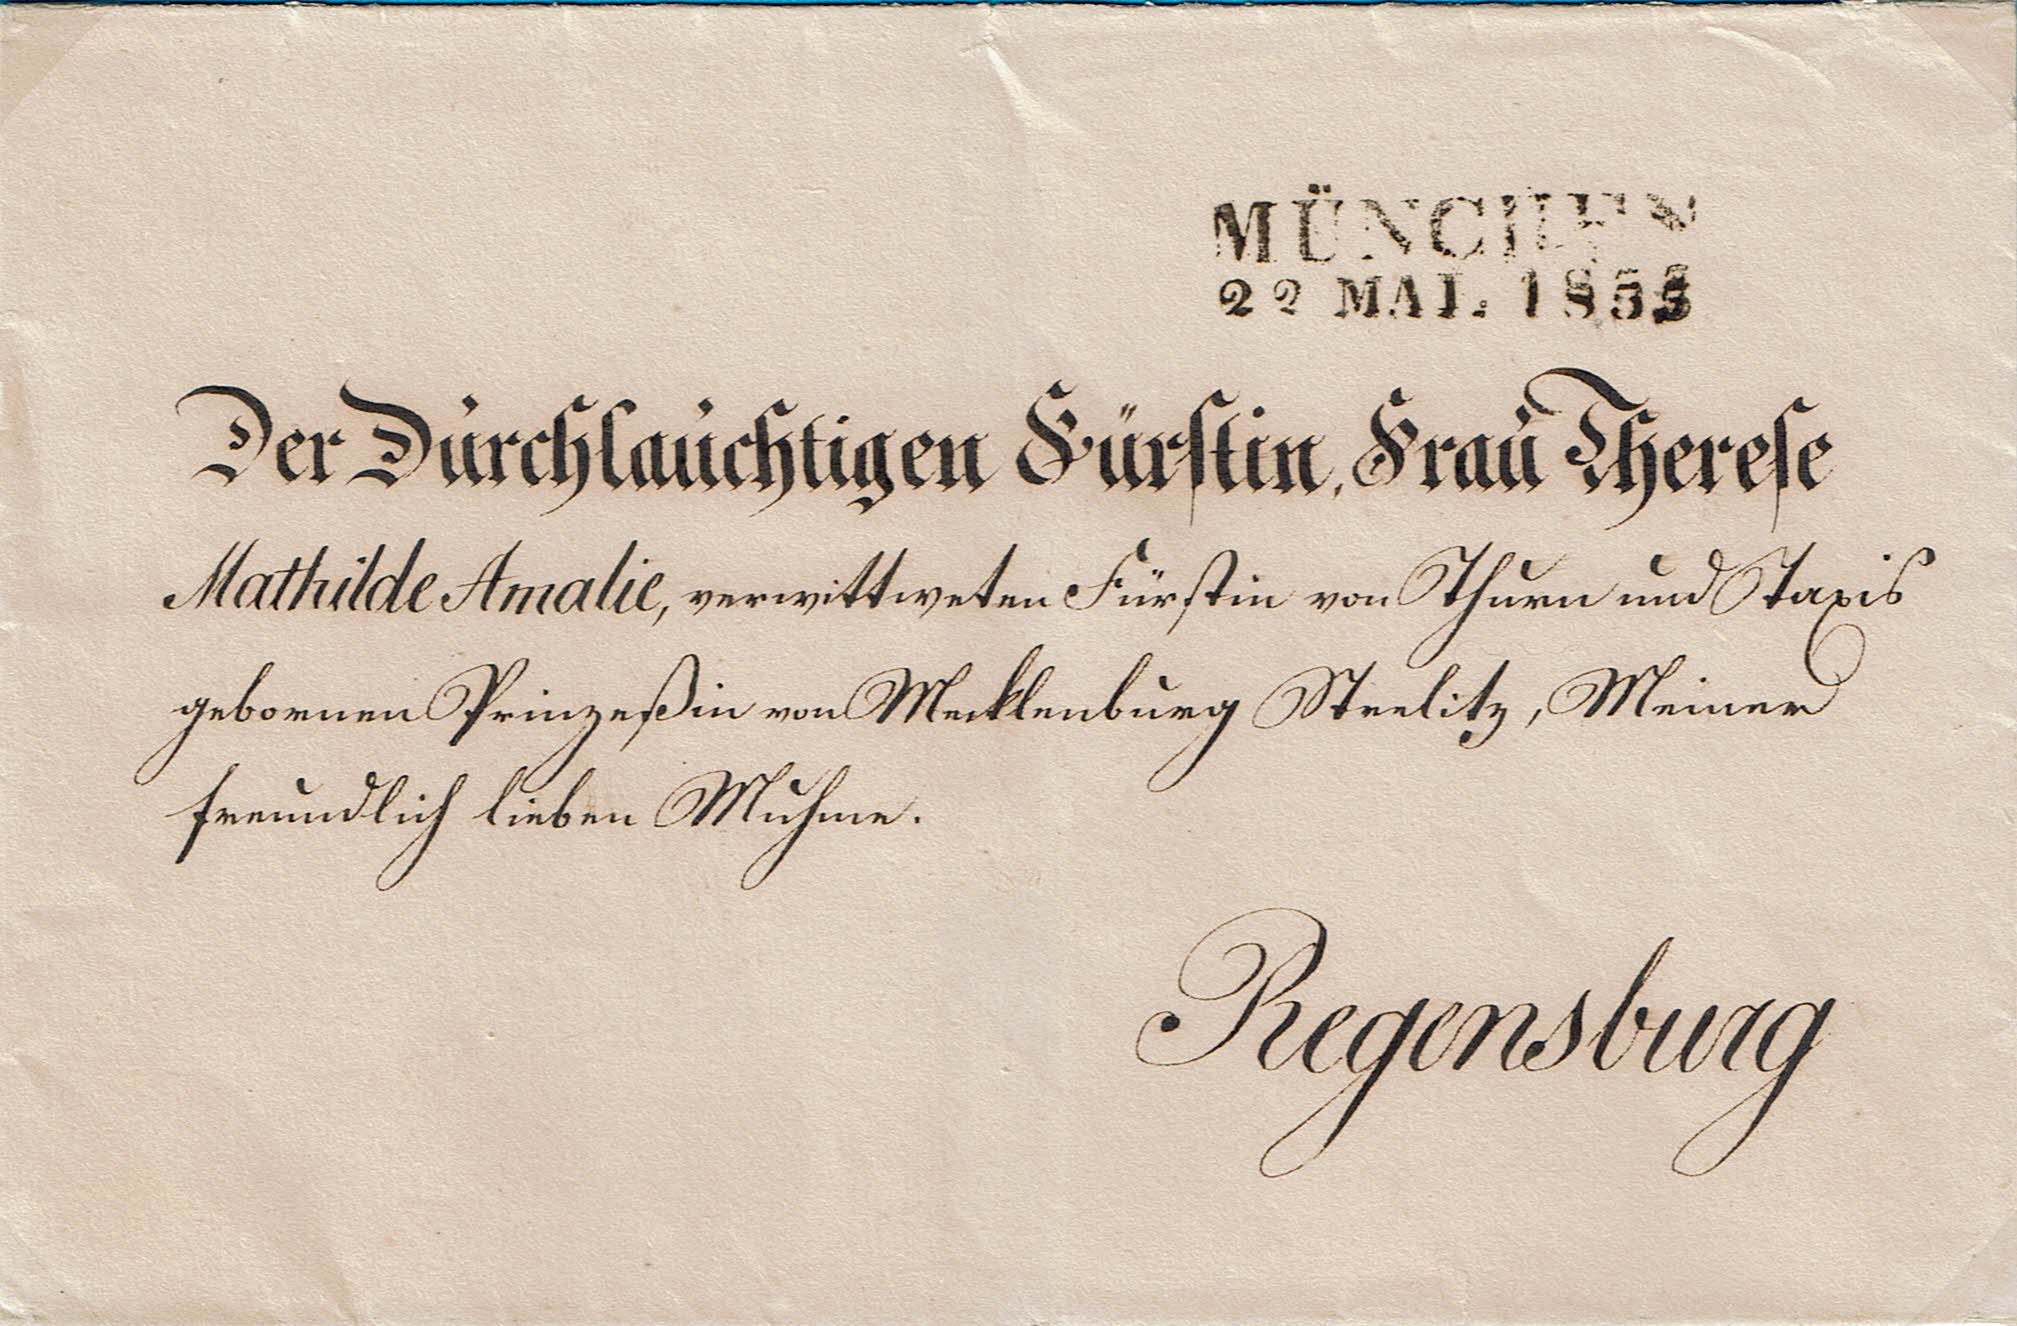 MÜNCHEN
22 MAI. 1835
Der Durchlauchtigen Fürstin, Frau Therese
Mathilde Amalie, verwittweten Fürstin von Thurn und Taxis
gebornen Prinzeßin von Mecklenburg Strelitz, Meiner
freundlich lieben Muhme.
Regensburg